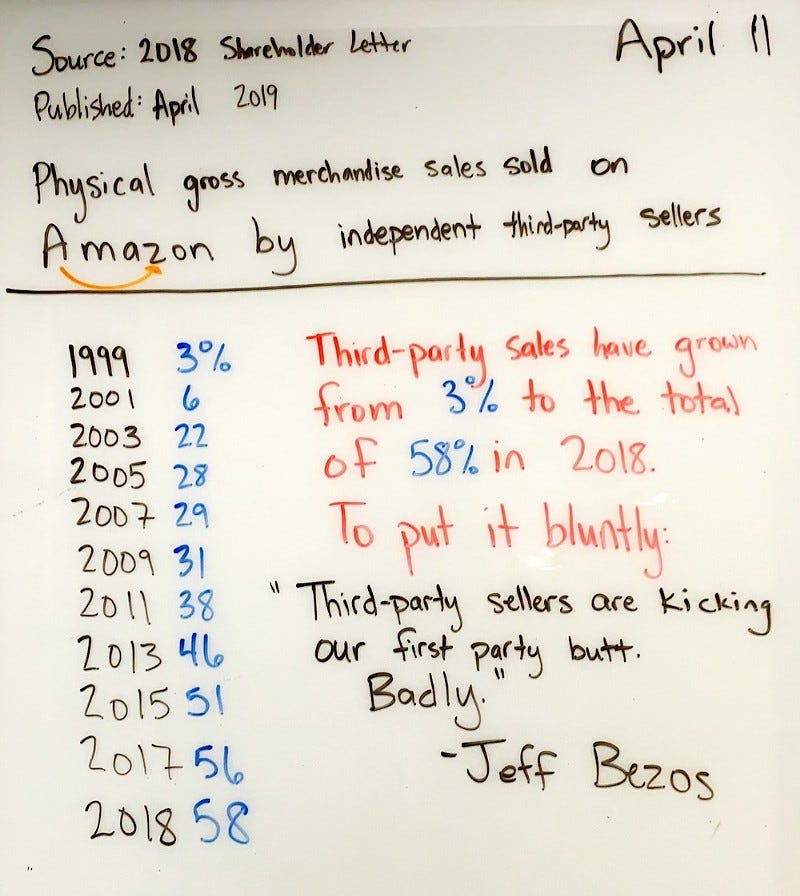 Source: 2018 Shareholder Letter
April 11
Published: April 2019
Physical gross merchandise sales sold on
Amazon by independent third-party sellers
1999 3%
2001 6
2003 22
2005 28
2007 29
2009 31
2011 38
2013 46
2015 51
2017 56
2018 58
Third-party sales have grown
from 3% to the total
of 58% in 2018.
To put it bluntly:
"Third-party sellers are kicking
our first party butt.
Badly."
-Jeff Bezos